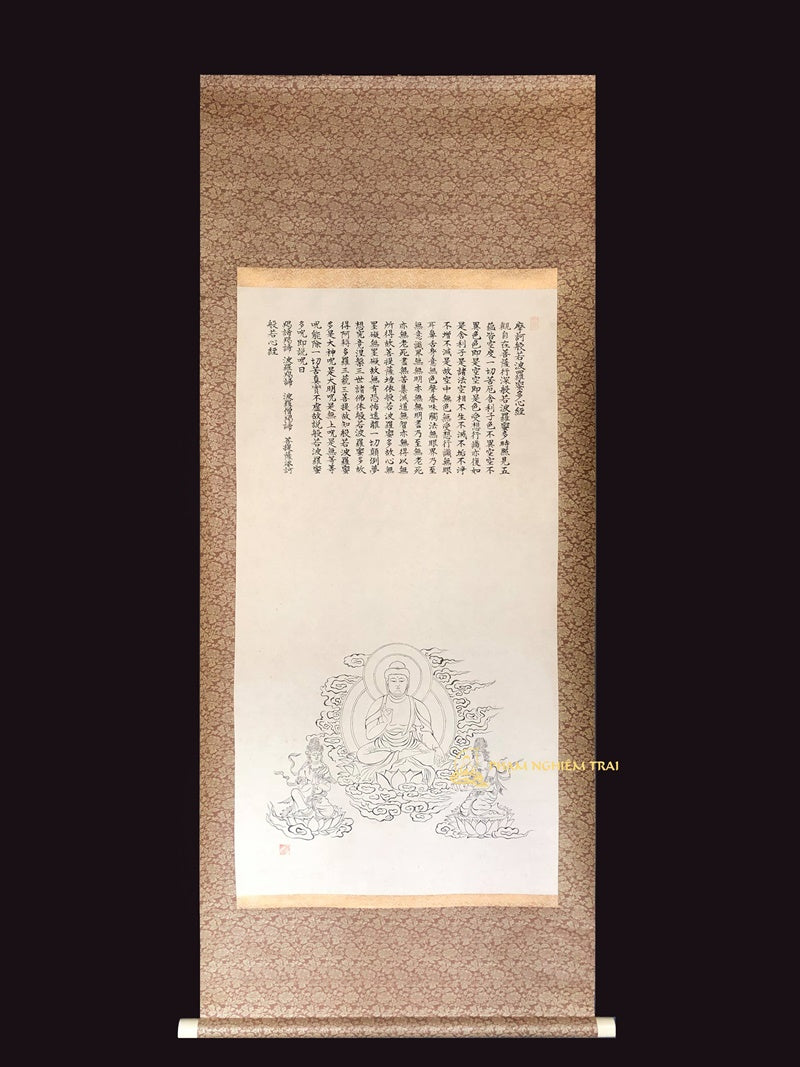 摩訶般若波羅蜜多心経
觀自在菩薩行深般若波羅蜜多時照見五
蘊皆空度一切苦厄舍利子色不異空空不
異色色即是空空即是色受想行識亦復如
是舍利子是諸法空相不生不滅不垢不淨
不增不減是故空中無色無受想行識無眼
耳鼻舌身意無色聲香味觸法無眼界乃至
無意識界無無明亦無無明盡乃至無老死
亦無老死盡無苦集滅道無智亦無得以無
所得故菩提薩埵依般若波羅蜜多故心無
罣礙無罣礙故無有恐怖遠離一切顛倒夢
想究竟涅槃三世諸佛依般若波羅蜜多故
得阿耨多羅三藐三菩提故知般若波羅蜜
多是大神呪是大明呪是無上呪是無等等
呪能除一切苦真實不虛故說般若波羅蜜
多呪即說呪曰
羯諦羯諦 波羅羯諦 波羅僧羯諦 菩提薩婆訶
般若心経
NGHIÊM TRAI